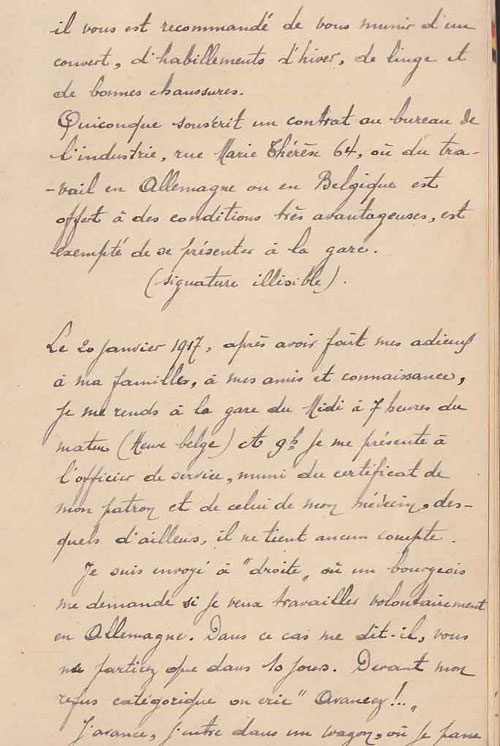 il vous est recommandé de vous munir d'un
couvert, d'habillements d'hiver, de linge et
de bonnes chaussures.
Quiconque souscrit un contrat au bureau de
l'industrie, rue Marie Thérèse 64, où du tra-
-vail en Allemagne ou en Belgique est
offert à des conditions très avantageuses, est
exempté de se présenter à la gare.
(signature illisible).
Le 20 janvier 1917, après avoir fait mes adieux
à ma familles, à mes amis et connaissance,
je me rends à la gare du Midi à 7 heures du
matin (Heure belge) A 9h je me présente à
l'officier de service, muni du certificat de
mon patron et de celui de mon médecin, des-
quels d'ailleurs, il ne tient aucun compte.
Je suis envoyé à "droite" où un bourgeois
me demande si je veux travailler volontairement
en Allemagne. Dans ce cas me dit-il, vous
ne partirez que dans 10 jours. Devant mon
refus catégorique on crie "Avancez!.."
J'avance, j'entre dans un wagon, où je passe